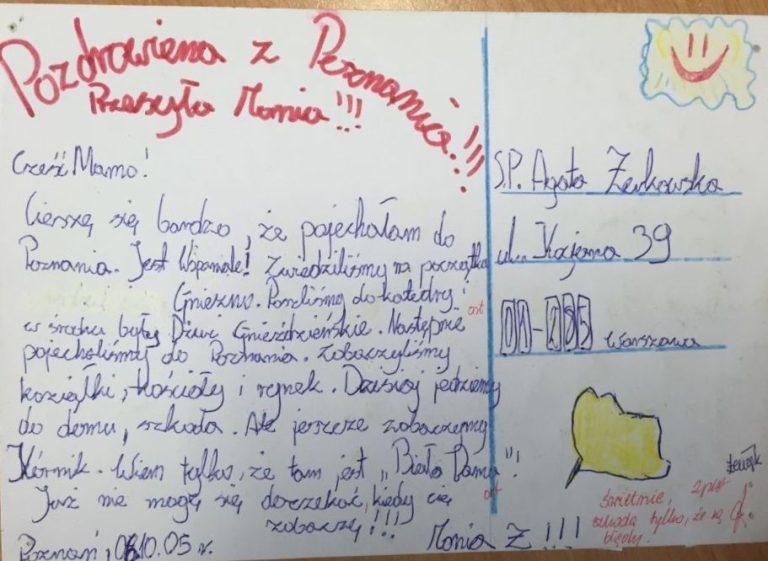 Pozdrowienia z Poznania!!!
Przesyła Monia!!!
Cześć Mamo!
Cieszę się bardzo, że pojechałam do
Poznania. Jest Wspaniale! Zwiedziliśmy na początku
Gniezno. Poszliśmy do katedry.
w środku były Dzwi Gnieździeńskie. Następnie
pojechaliśmy do Poznania. Zobaczyliśmy
koziąłki, kościoły i rynek. Dzisiaj jedziemy
do domu, szkoda. Ale jeszcze zobaczemy
Kórnik. Wiem tylko, że tam jest "Biała Dama"!
Już nie mogę się doczekać, kiedy cię
zobaczę!!!
Poznań, 08.10.05 r.
Monia Ż!!!
ort
ort
S.P. Agata Żerkowska
ul.
39
01-285 Warszawa
świetnie,
szkoda tylko, że są
błędy.